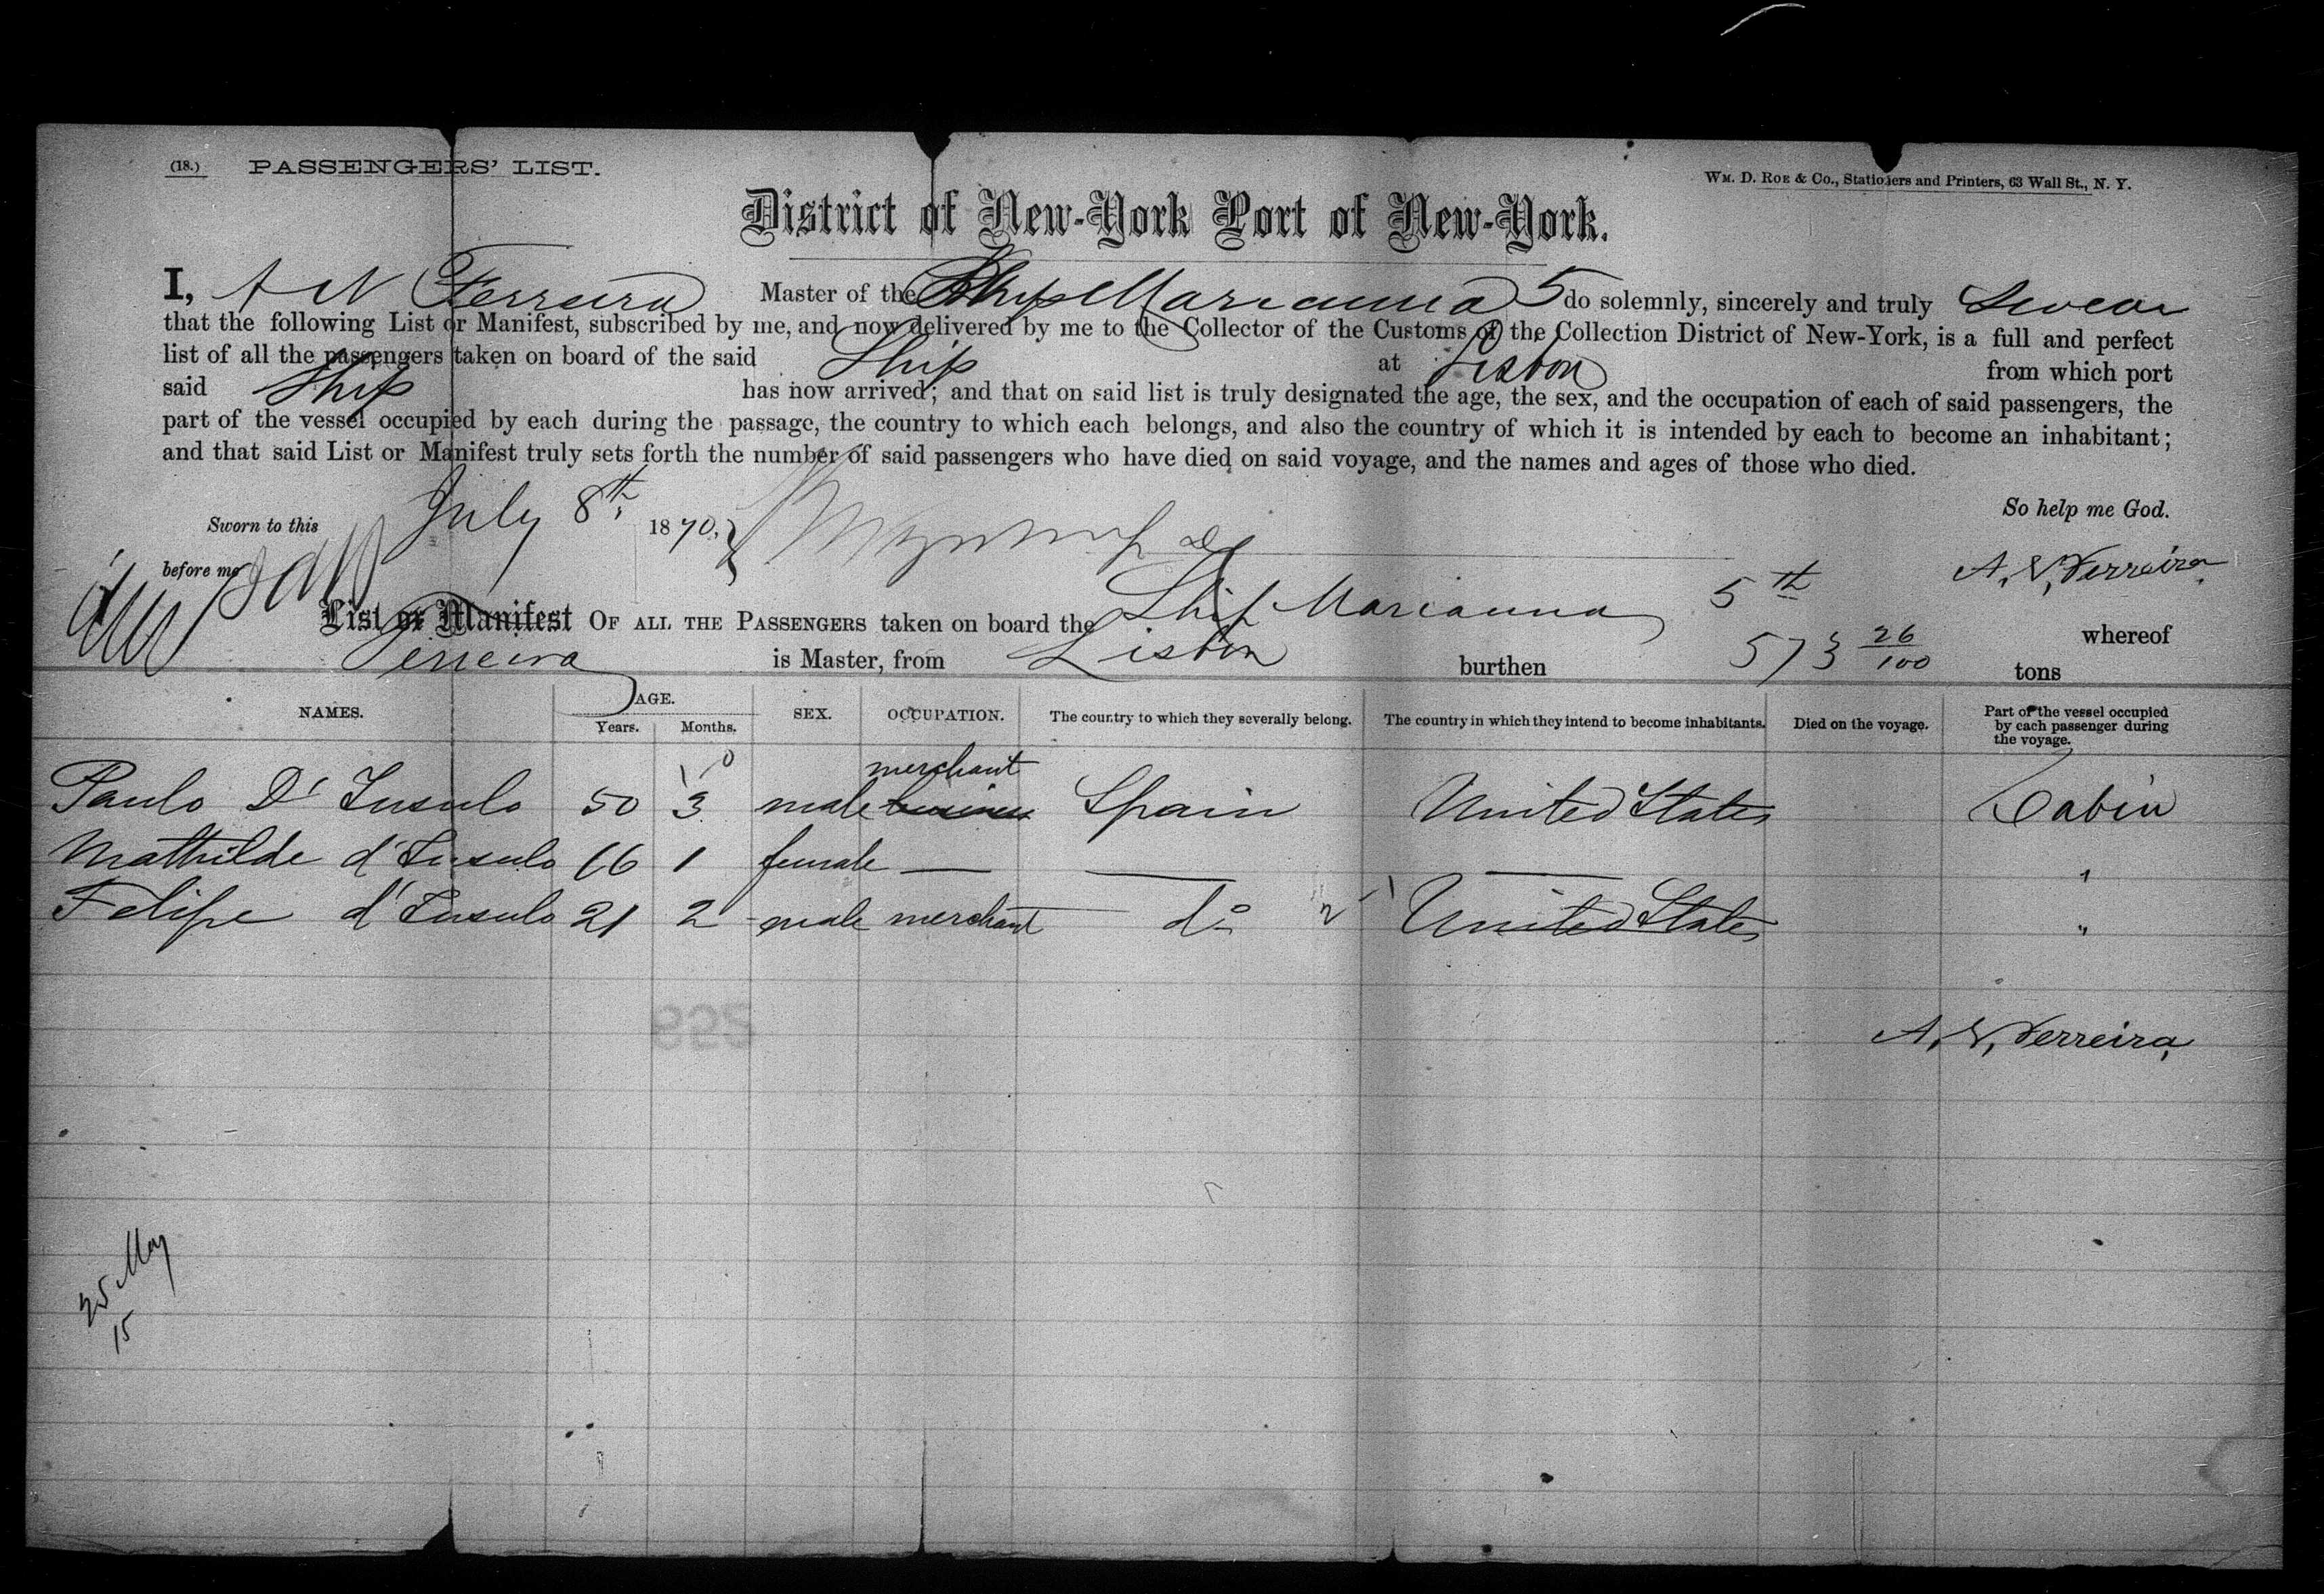 (18.) PASSENGERS' LIST.
WM. D. ROE & CO., Stationers and Printers, 63 Wall St., N. Y.
District of New-York Port of New-York.
I, A N Ferreira Master of the Ship Marianna 5 do solemnly, sincerely and truly Swear
that the following List or Manifest, subscribed by me, and now delivered by me to the Collector of the Customs of the Collection District of New-York, is a full and perfect
list of all the passengers taken on board of the said Ship at Lisbon from which port
said Ship has now arrived; and that on said list is truly designated the age, the sex, and the occupation of each of said passengers, the
part of the vessel occupied by each during the passage, the country to which each belongs, and also the country of which it is intended by each to become an inhabitant;
and that said List or Manifest truly sets forth the number of said passengers who have died on said voyage, and the names and ages of those who died.
So help me God.
Sworn to this July 8th, 1870,
before me A. N, Ferreira
List or Manifest OF ALL THE PASSENGERS taken on board the Ship Marianna 5th whereof
Ferreira is Master, from Lisbon burthen 573 26/100 tons
NAMES. AGE. Years. Months. SEX. OCCUPATION. The country to which they severally belong. The country in which they intend to become inhabitants. Died on the voyage. Part of the vessel occupied by each passenger during the voyage.
merchant
Paulo D' Insulo 50 3 male Spain United States Cabin
Mathilde d'Insulo 16 1 female — — — "
Felipe d'Insulo 21 2 male merchant do United States "
A, N, Ferreira
25 May
15